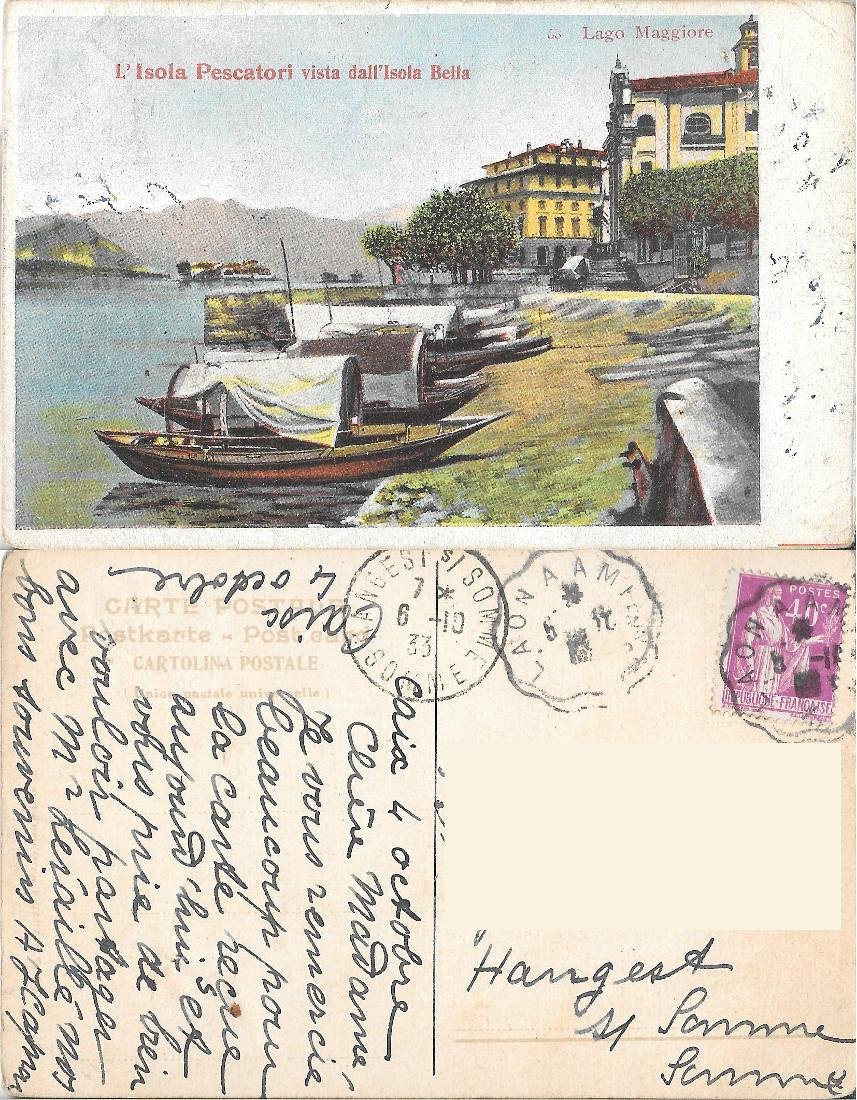 60 Lago Maggiore
L'Isola Pescatori vista dall'Isola Bella
CARTE POSTALE
Postkarte - Post card
CARTOLINA POSTALE
(Union postale universelle)
HANGEST S/ SOMME
7 *
6 -10
33
SOMME
LAON A AMIENS
LAON A
POSTES
40c
REPUBLIQUE FRANÇAISE
Caix
4 octobre
Caix 4 octobre
Chère Madame,
Je vous remercie
beaucoup pour
la carte reçue
aujourd'hui et
vous prie de bien
vouloir partager
avec Mr nos
bons souvenirs
Hangest
s/ Somme
Somme